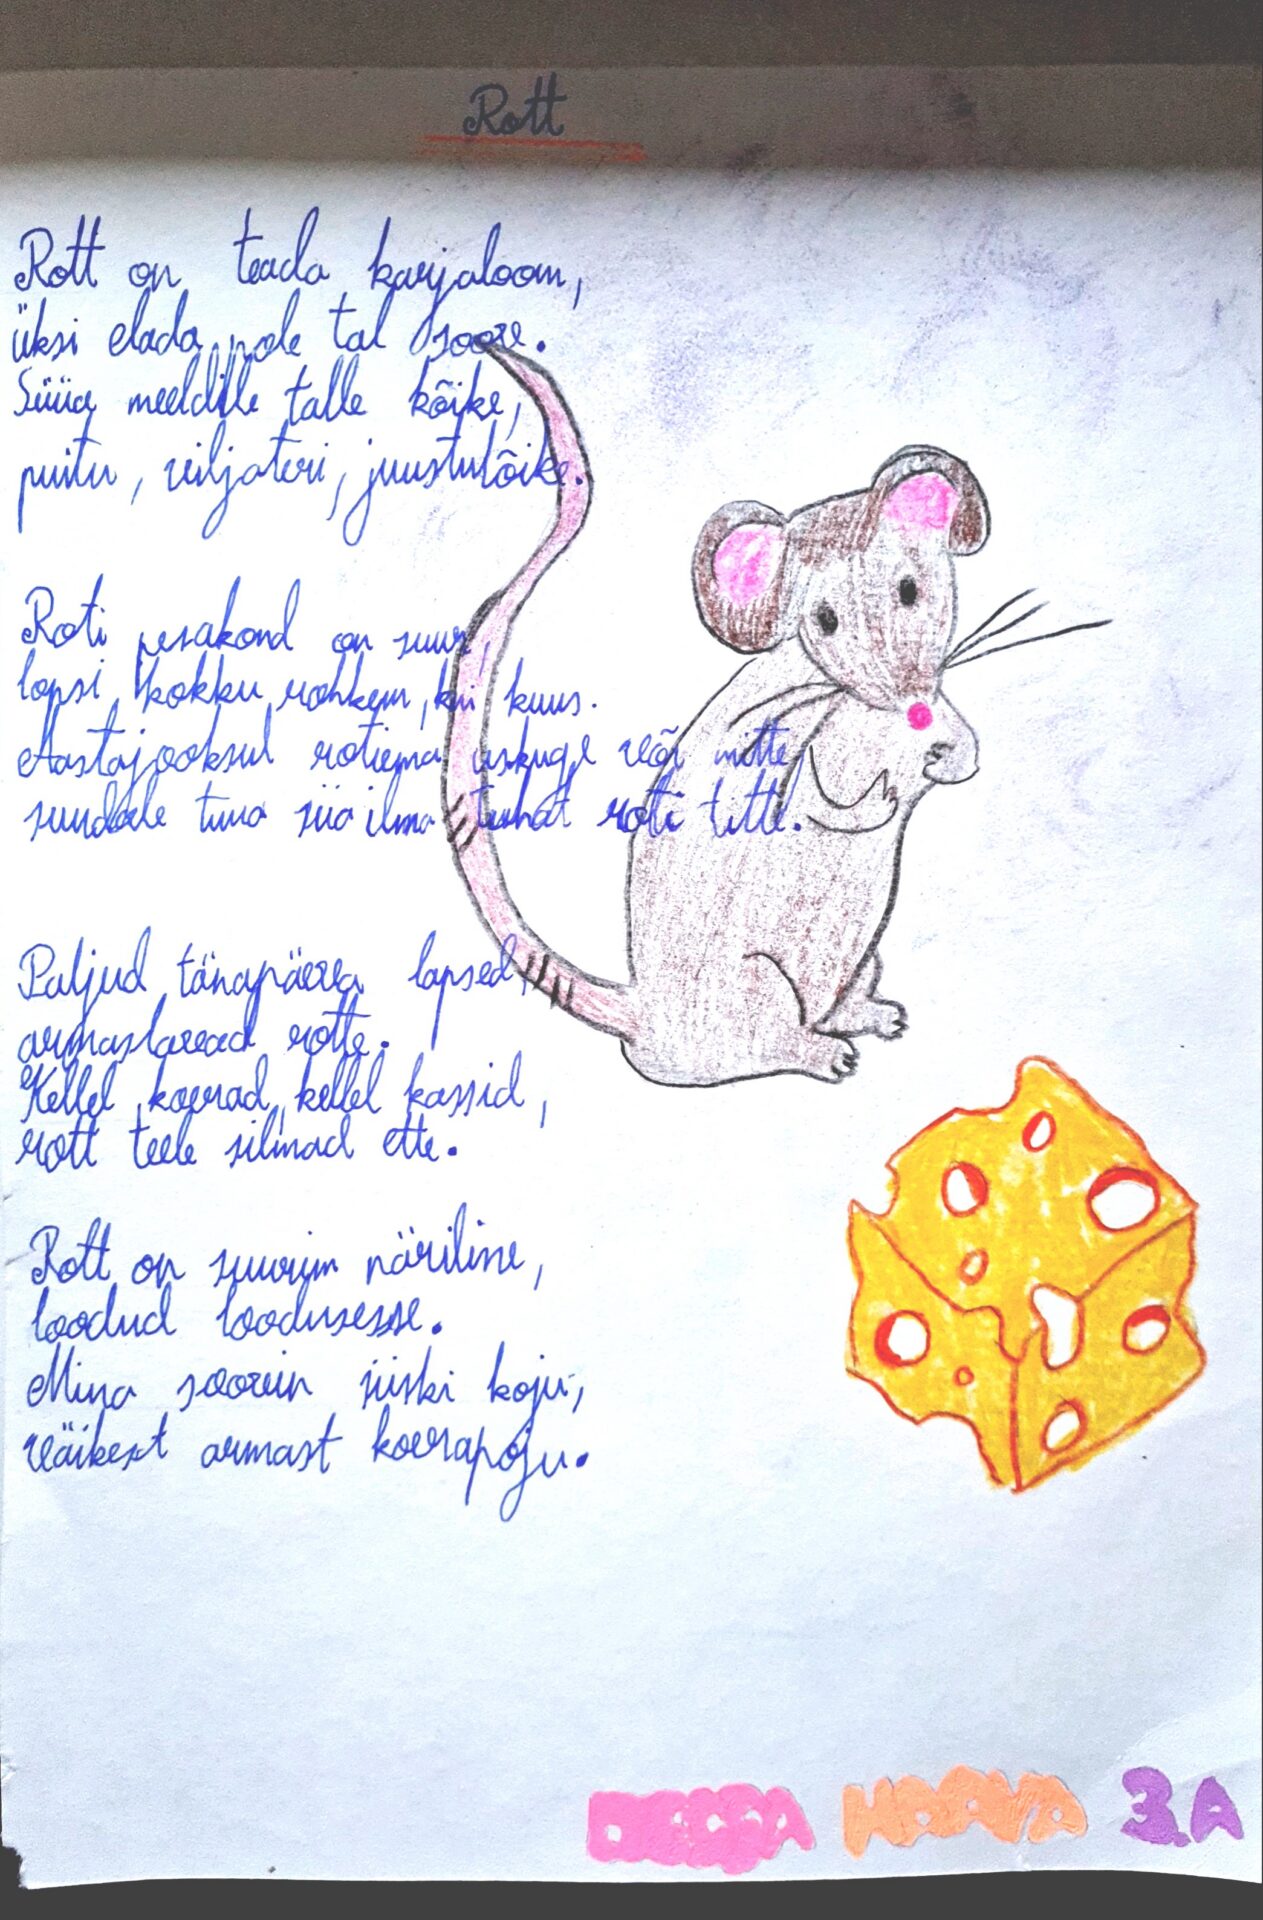 Rott
Rott on teada karjaloom,
üksi elada pole tal soov.
Süüa meeldib talle kõike,
puitu, viljateri, juustulõike.
Roti pesakond on suur,
lapsi kokku rohkem, kui kuus.
Aastajooksul rotiema uskuge või mitte,
suudab tuua siia ilma tuhat roti titte.
Paljud tänapäeva lapsed,
armastavad rotte.
Kellel koerad, kellel kassid,
rott teele silmad ette.
Rott on suurim näriline,
loodud loodusesse.
Mina soovin siiski koju,
väikest armast koerapoju.
HAAVA 3.A